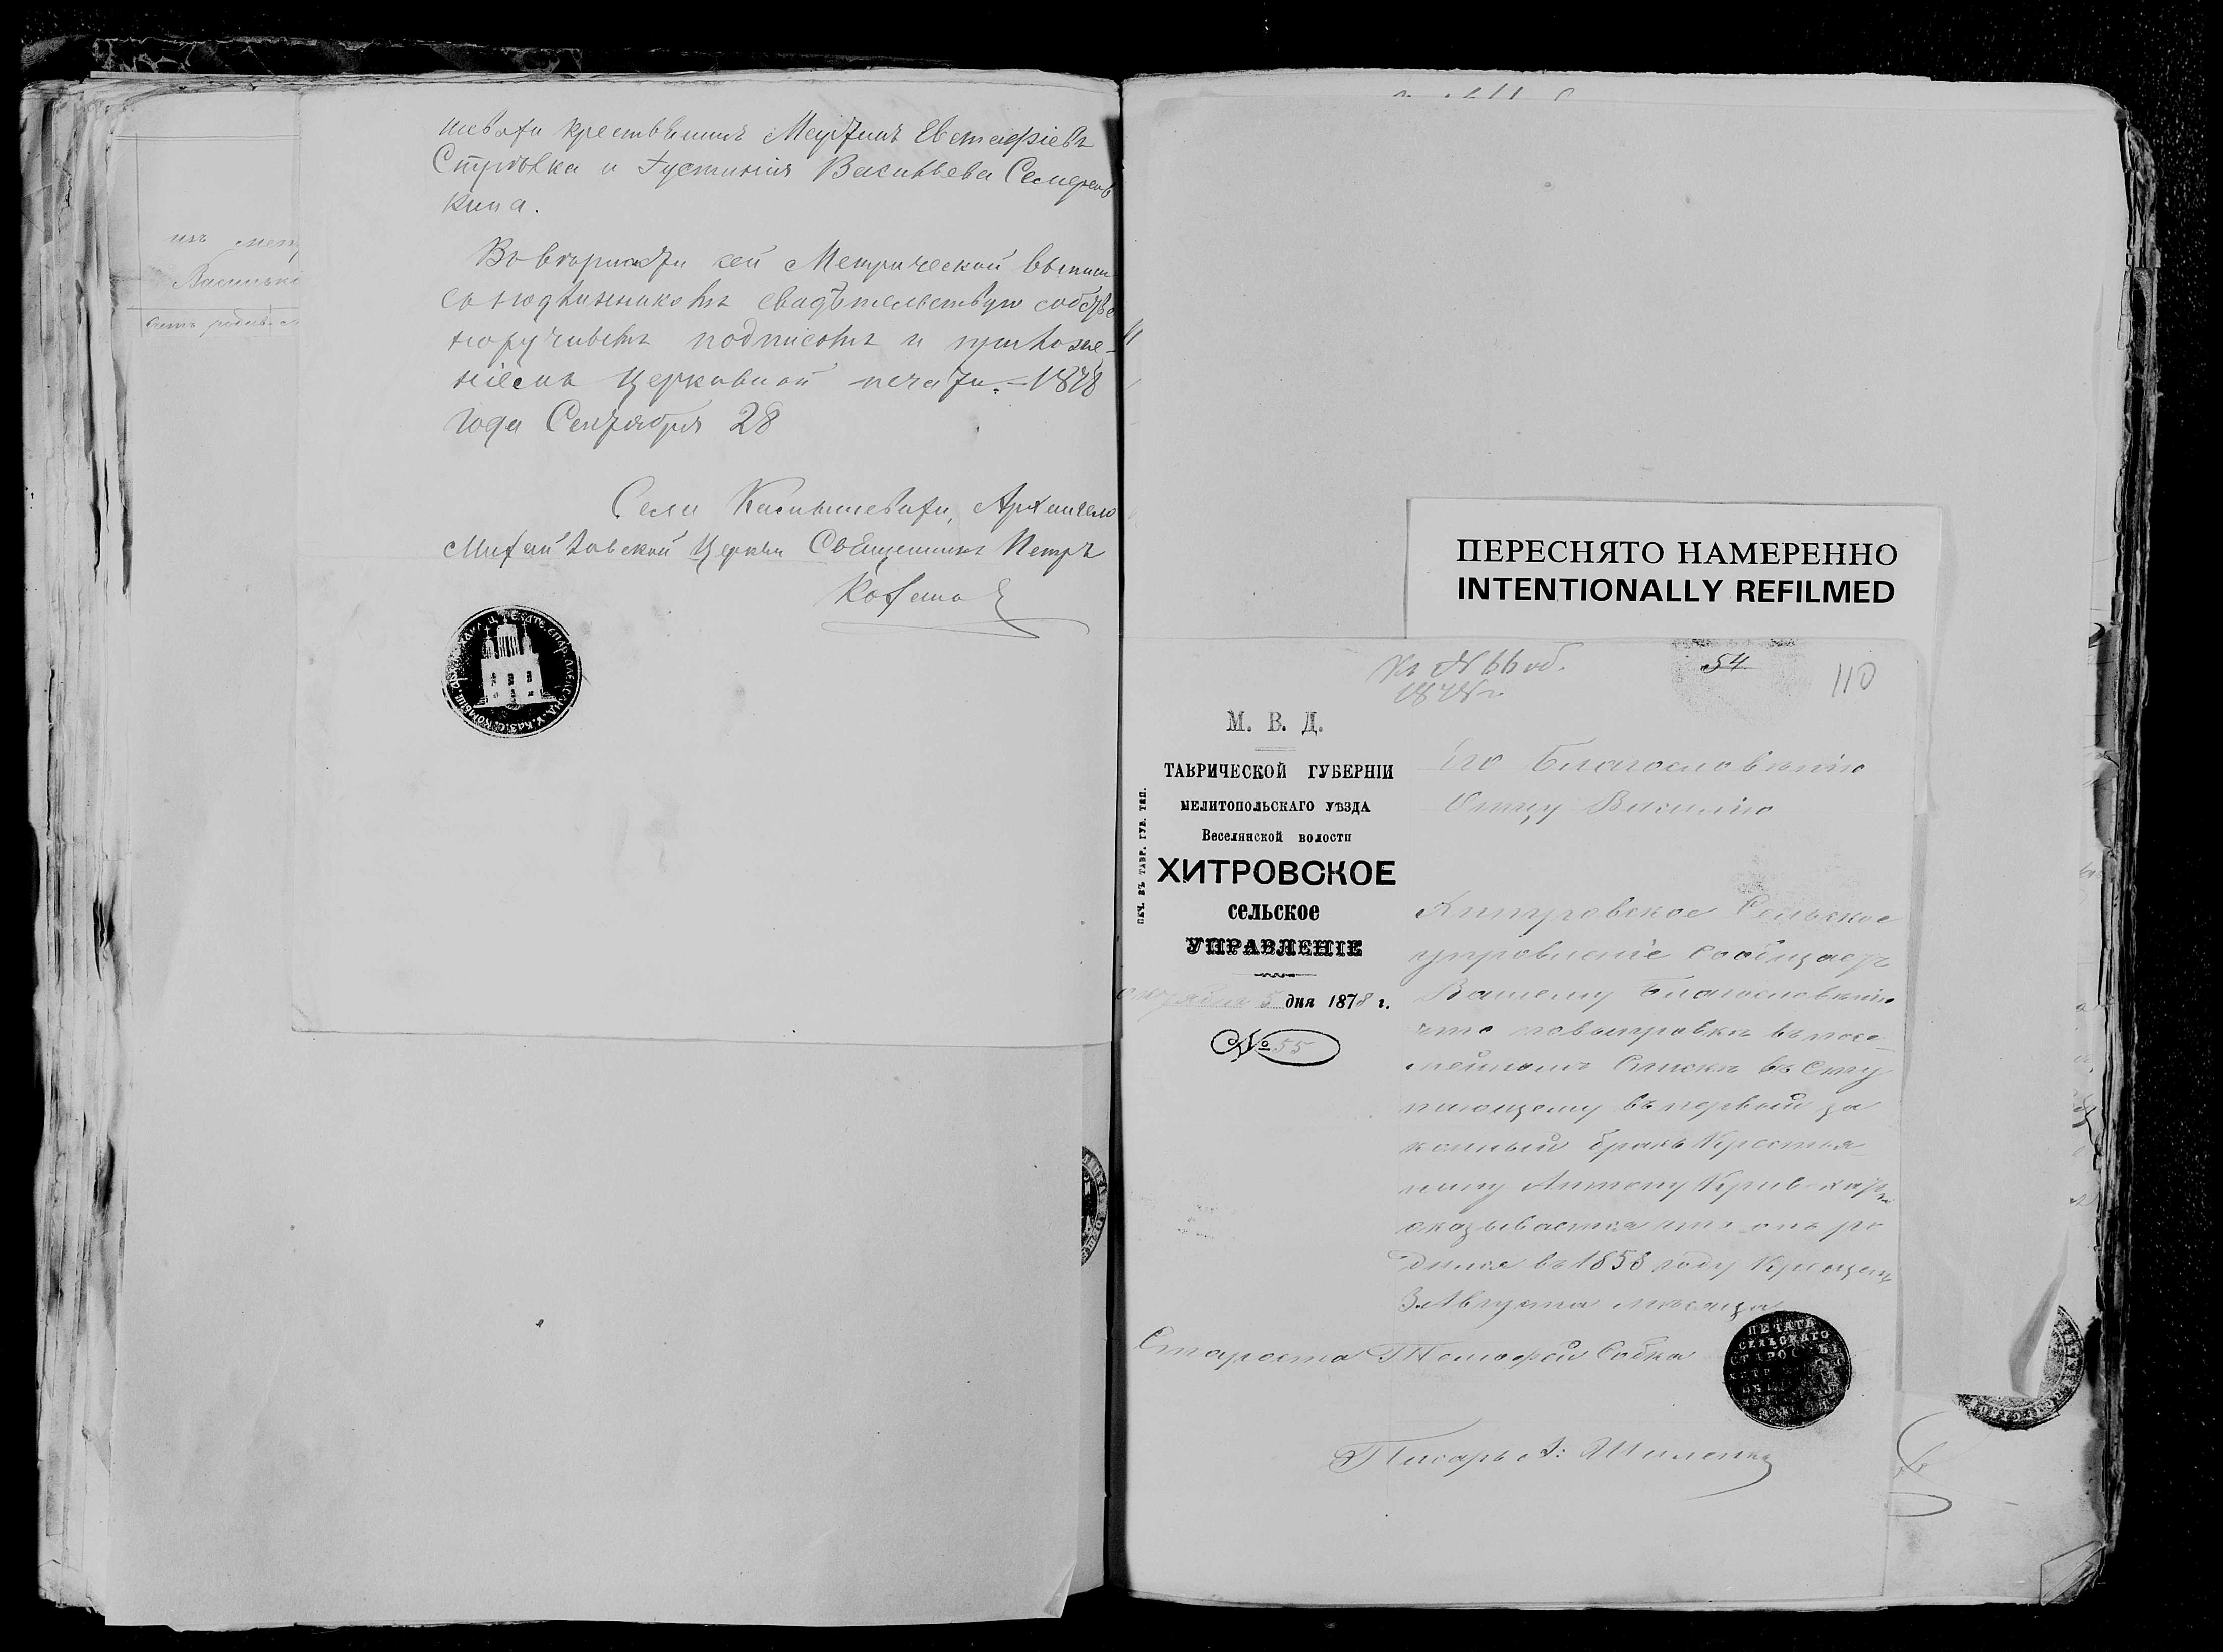 шевати крестьянинъ Мартинъ Евстафіевъ
и Густинія Васильева
кина.
Въ вѣрности сей Метрической выписи
съ подлинникомъ свидѣтельствую собстве
норучнымъ подписомъ и приложе-
ніемъ Церковной печати. – 1878
года Сентября 28
Села Камышевати, Архангело
Михайловской Церкви Священникъ Петръ
изъ
ПЕРЕСНЯТО НАМЕРЕННО
INTENTIONALLY REFILMED
54
110
М. В. Д.
ТАВРИЧЕСКОЙ ГУБЕРНІИ
МЕЛИТОПОЛЬСКАГО УѢЗДА
Веселянской волости
ХИТРОВСКОЕ
сельское
УПРАВЛЕНІЕ
октября 5 дня 1878 г.
№ 55
ПЕЧ. ВЪ ТАВР. ГУБ. ТИП.
Его Благословенію
Отцу Василію
Хитровское Сельское
управленіе сообщаетъ
Вашему Благословенію
что повыправкѣ въ посе-
мейномъ Спискѣ въ Сту
пающему въ первый за
конный бракъ Крестья-
нину Антону
оказывается что онъ ро
дился въ 1858 году Крещенъ
3 Августа мѣсяца
Староста Тимофей Собка
Писарь А: Шиленко
ПЕЧАТЬ
СЕЛЬСКАГО
СТАРОСТЫ